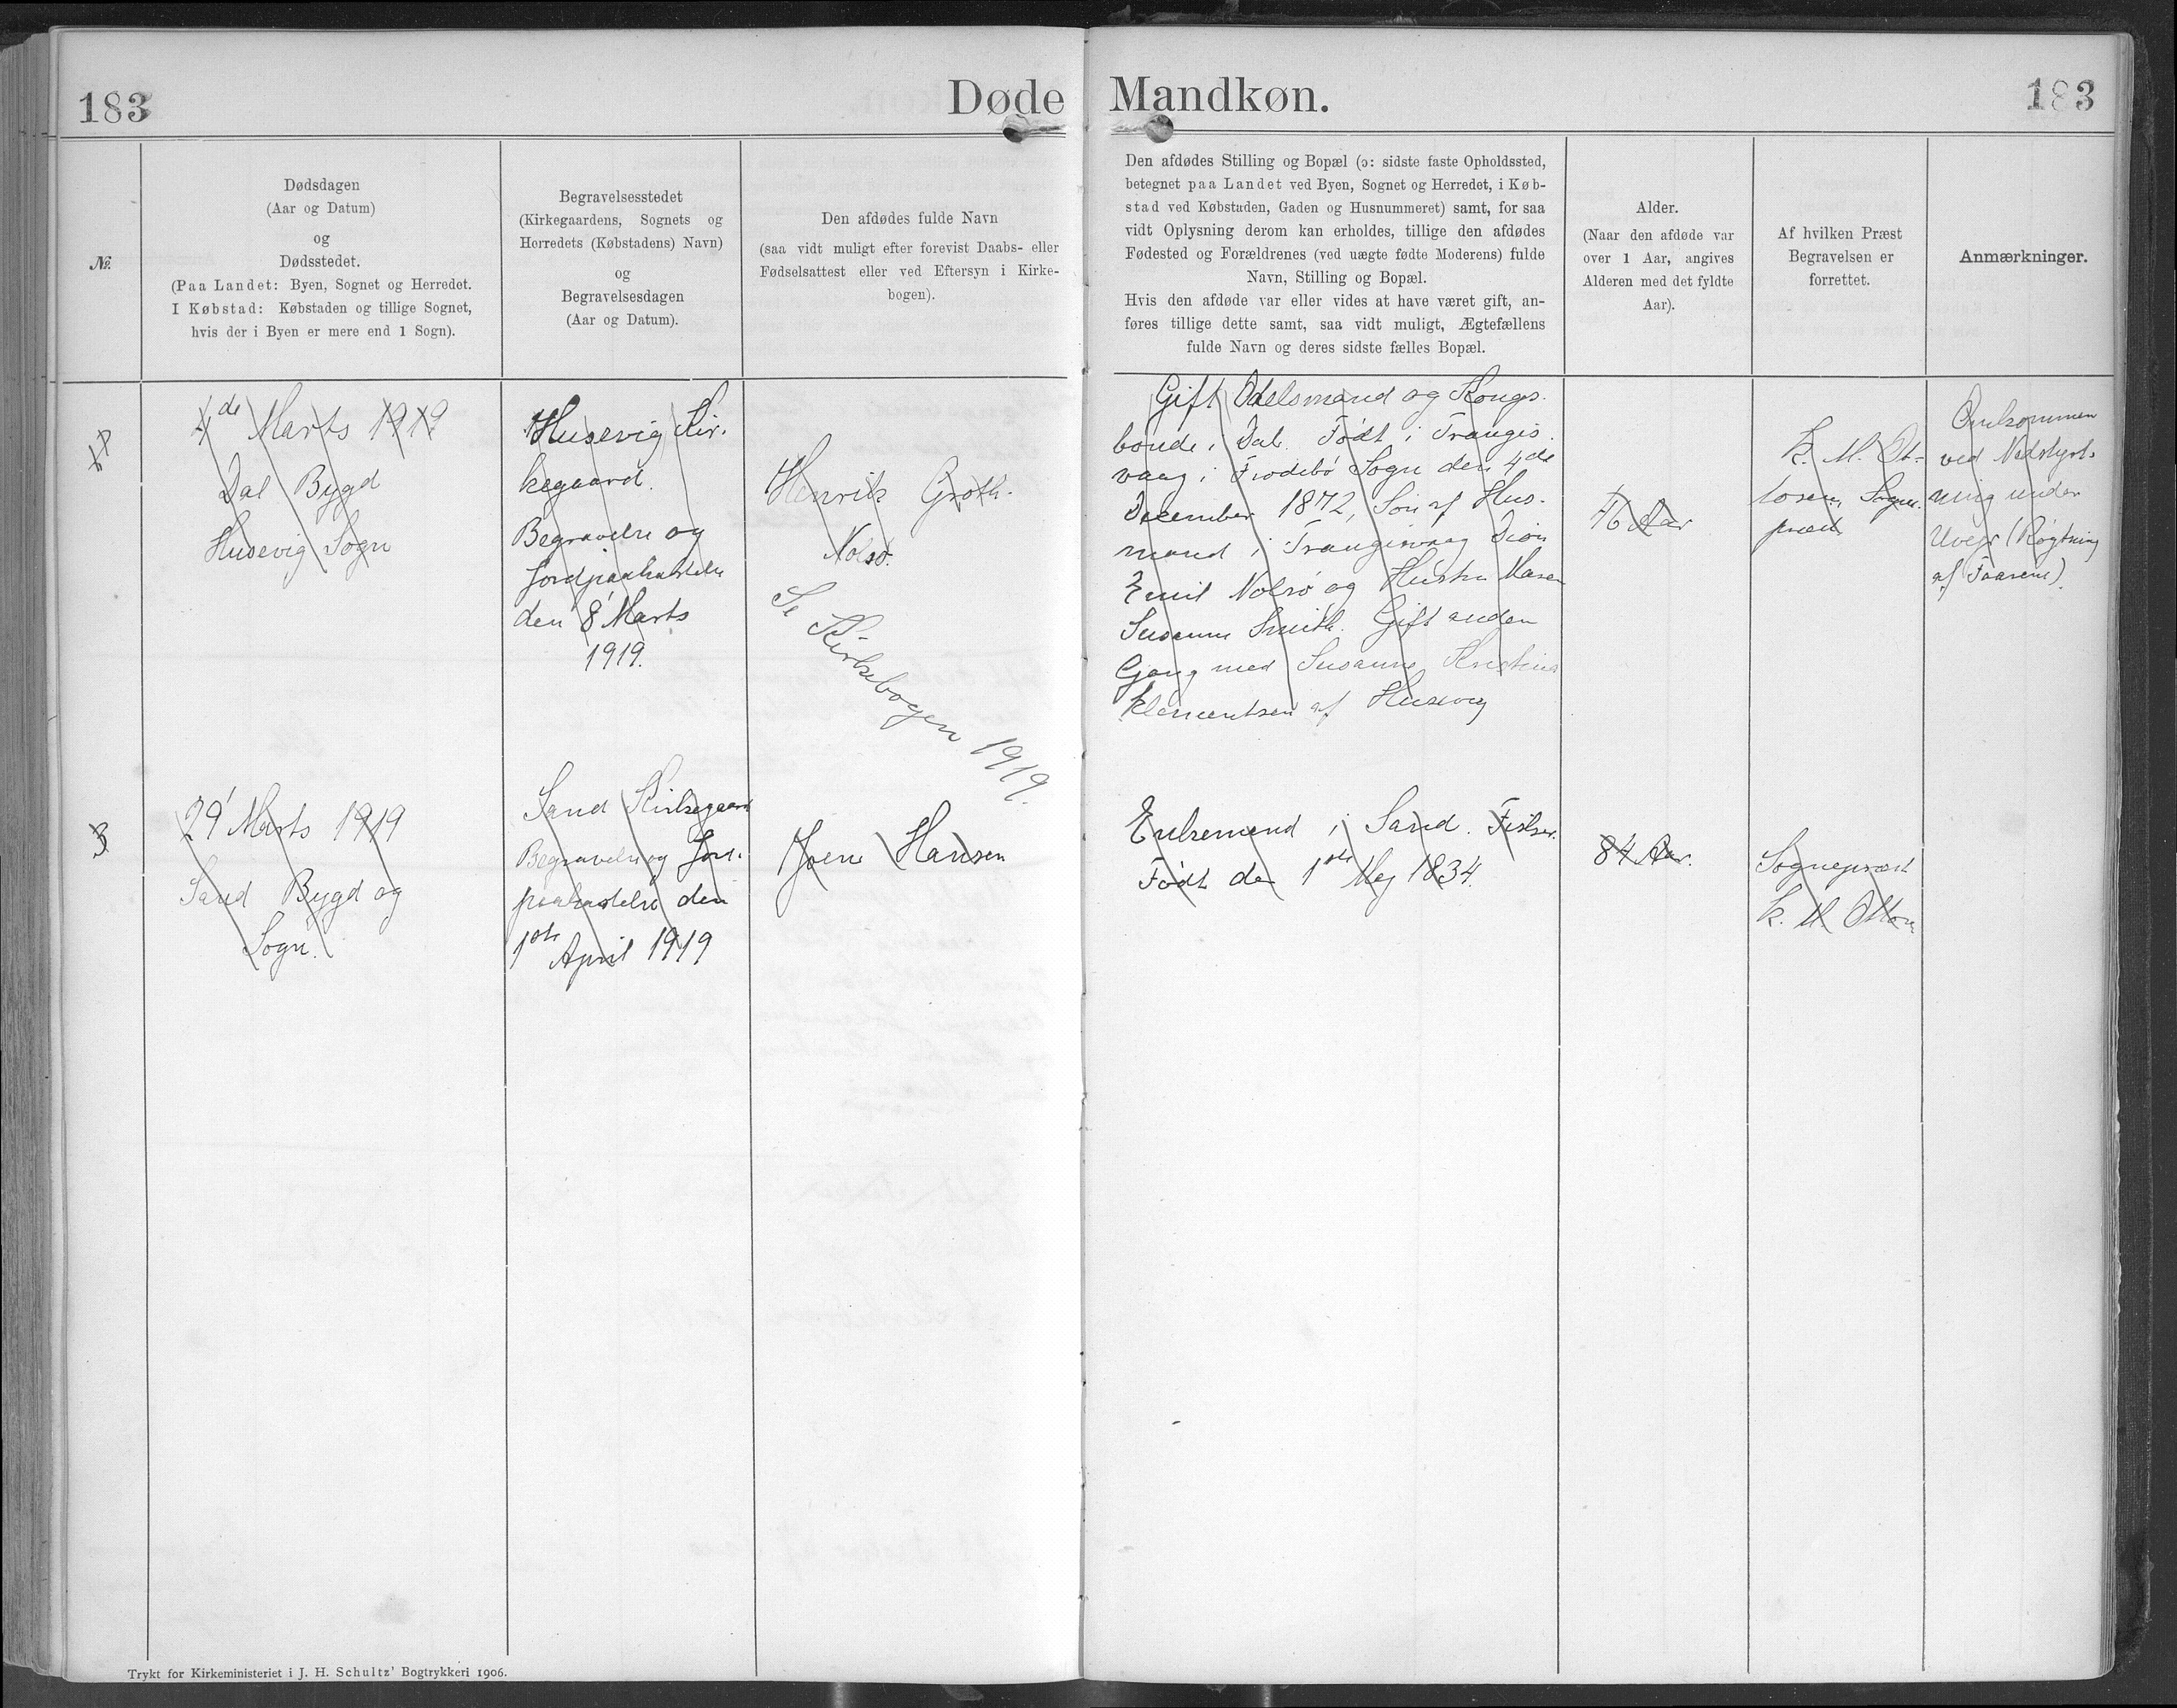 183
Døde Mandkøn.
183
№
Dødsdagen
(Aar og Datum)
og
Dødsstedet.
(Paa Landet: Byen, Sognet og Herredet.
I Købstad: Købstaden og tillige Sognet,
hvis der i Byen er mere end 1 Sogn).
Begravelsesstedet
(Kirkegaardens, Sognets og
Herredets (Købstadens) Navn)
og
Begravelsesdagen
(Aar og Datum).
Den afdødes fulde Navn
(saa vidt muligt efter forevist Daabs- eller
Fødselsattest eller ved Eftersyn i Kirke-
bogen).
Den afdødes Stilling og Bopæl (ɔ: sidste faste Opholdssted,
betegnet paa Landet ved Byen, Sognet og Herredet, i Køb-
stad ved Købstaden, Gaden og Husnummeret) samt, for saa
vidt Oplysning derom kan erholdes, tillige den afdødes
Fødested og Forældrenes (ved uægte fødte Moderens) fulde
Navn, Stilling og Bopæl.
Hvis den afdøde var eller vides at have været gift, an-
føres tillige dette samt, saa vidt muligt, Ægtefællens
fulde Navn og deres sidste fælles Bopæl.
Alder.
(Naar den afdøde var
over 1 Aar, angives
Alderen med det fyldte
Aar).
Af hvilken Præst
Begravelsen er
forrettet.
Anmærkninger.
4de Marts 1919
Dal Bygd
Husevig Sogn
Husevig Kir-
kegaard.
Begravelse og
Jordpaakastelse
den 8' Marts
1919.
Henrik Groth-
Nolsø.
Se Kirkebogen 1919.
Gift Odelsmand og Kongs-
bonde i Dal. Født i Trangis-
vaag i Frodebø Sogn den 4de
December 1872, Søn af Hus-
mand i Trangisvaag
Emil Nolsø og Hustru Maren
Susanne Smith. Gift anden
Gang med Susanne Kristina
Klementsen af Husevig
46 Aar
K. M. Ot-
tosen, Sogne-
præst
Omkommen
ved Nedstyrt-
ning under
Uvejr (Røgtning
af Faarene).
3
29' Marts 1919
Sand Bygd og
Sogn.
Sand Kirkegaard
Begravelse og Jord-
paakastelse den
1ste April 1919
Joen Hansen
Enkemand i Sand. Fisker.
Født den 1ste Maj 1834.
84 Aar.
Sognepræst
K. M. Ottosen
Trykt for Kirkeministeriet i J. H. Schultz' Bogtrykkeri 1906.